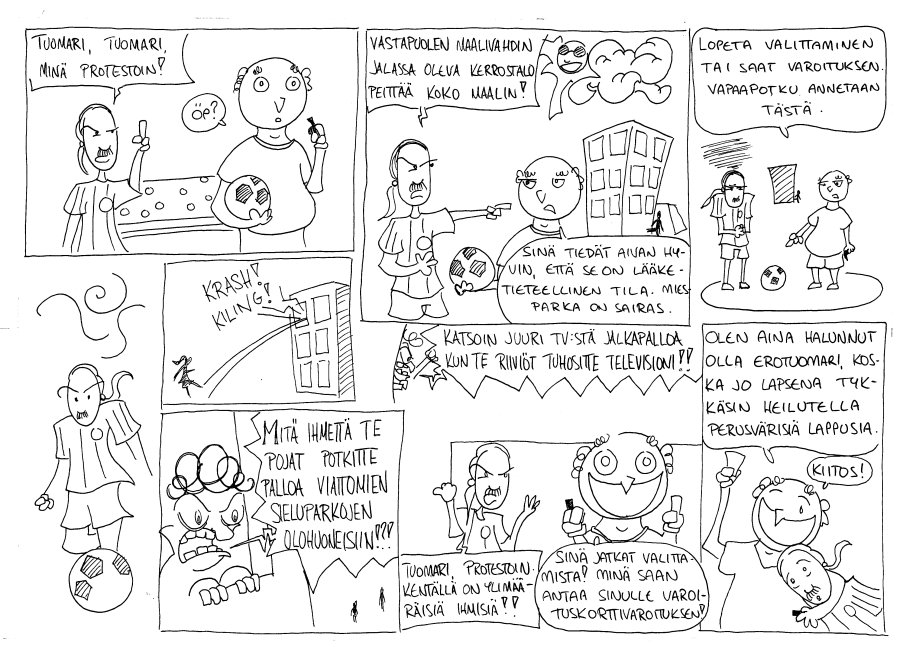 TUOMARI, TUOMARI,
MINÄ PROTESTOIN!
ÖP?
VASTAPUOLEN MAALIVAHDIN
JALASSA OLEVA KERROSTALO
PEITTÄÄ KOKO MAALIN!
SINÄ TIEDÄT AIVAN HY-
VIN, ETTÄ SE ON LÄÄKE-
TIETEELLINEN TILA. MIES-
PARKA ON SAIRAS.
LOPETA VALITTAMINEN
TAI SAAT VAROITUKSEN.
VAPAAPOTKU ANNETAAN
TÄSTÄ.
KRASH!
KILING!
MITÄ IHMETTÄ TE
POJAT POTKITTE
PALLOA VIATTOMIEN
SIELUPARKOJEN
OLOHUONEISIIN!?!
KATSOIN JUURI TV:STÄ JALKAPALLOA
KUN TE RIIVIÖT TUHOSITTE TELEVISIONI!!
TUOMARI, PROTESTOIN.
KENTÄLLÄ ON YLIMÄÄ-
RÄISIÄ IHMISIÄ!!
SINÄ JATKAT VALITTA-
MISTA! MINÄ SAAN
ANTAA SINULLE VAROI-
TUSKORTTIVAROITUKSEN!
OLEN AINA HALUNNUT
OLLA EROTUOMARI, KOS-
KA JO LAPSENA TYK-
KÄSIN HEILUTELLA
PERUSVÄRISIÄ LAPPUSIA.
KIITOS!